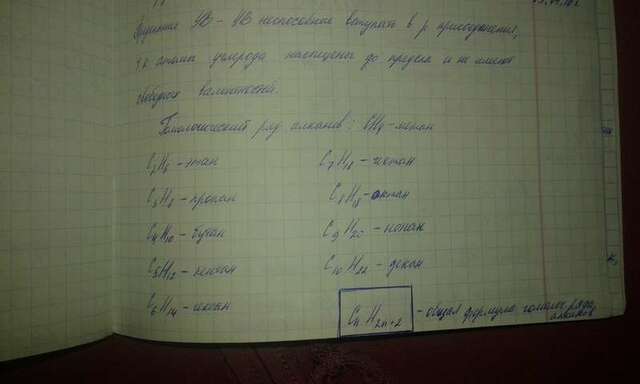 УВ - УВ неспособные вступать в р. присоединения,
т.к. атомы углерода насыщены до предела и не имеют
свободных валентностей.
Гомологический ряд алканов: CH4 - метан
C2H6 - этан
C3H8 - пропан
C4H10 - бутан
C5H12 - пентан
C6H14 - гексан
C7H16 - гептан
C8H18 - октан
C9H20 - нонан
C10H22 - декан
CnH2n+2 - общая формула гомолог. ряда
алканов